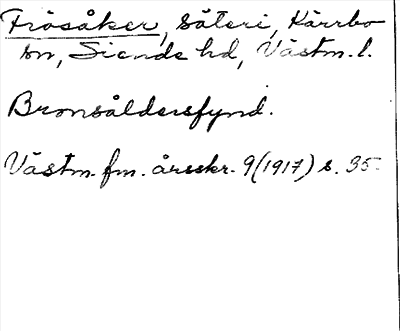 Frösåker, säteri, Kärrbo
sn, Siende hd, Västm. l.
Bronsåldersfynd.
Västm. fm. årsskr. 9 (1917) s. 35.